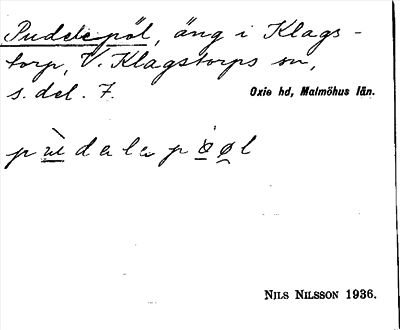 Puddelepöl, äng i Klags-
torp, V. Klagstorps sn,
s. del. 7. Oxie hd, Malmöhus län.
NILS NILSSON 1936.